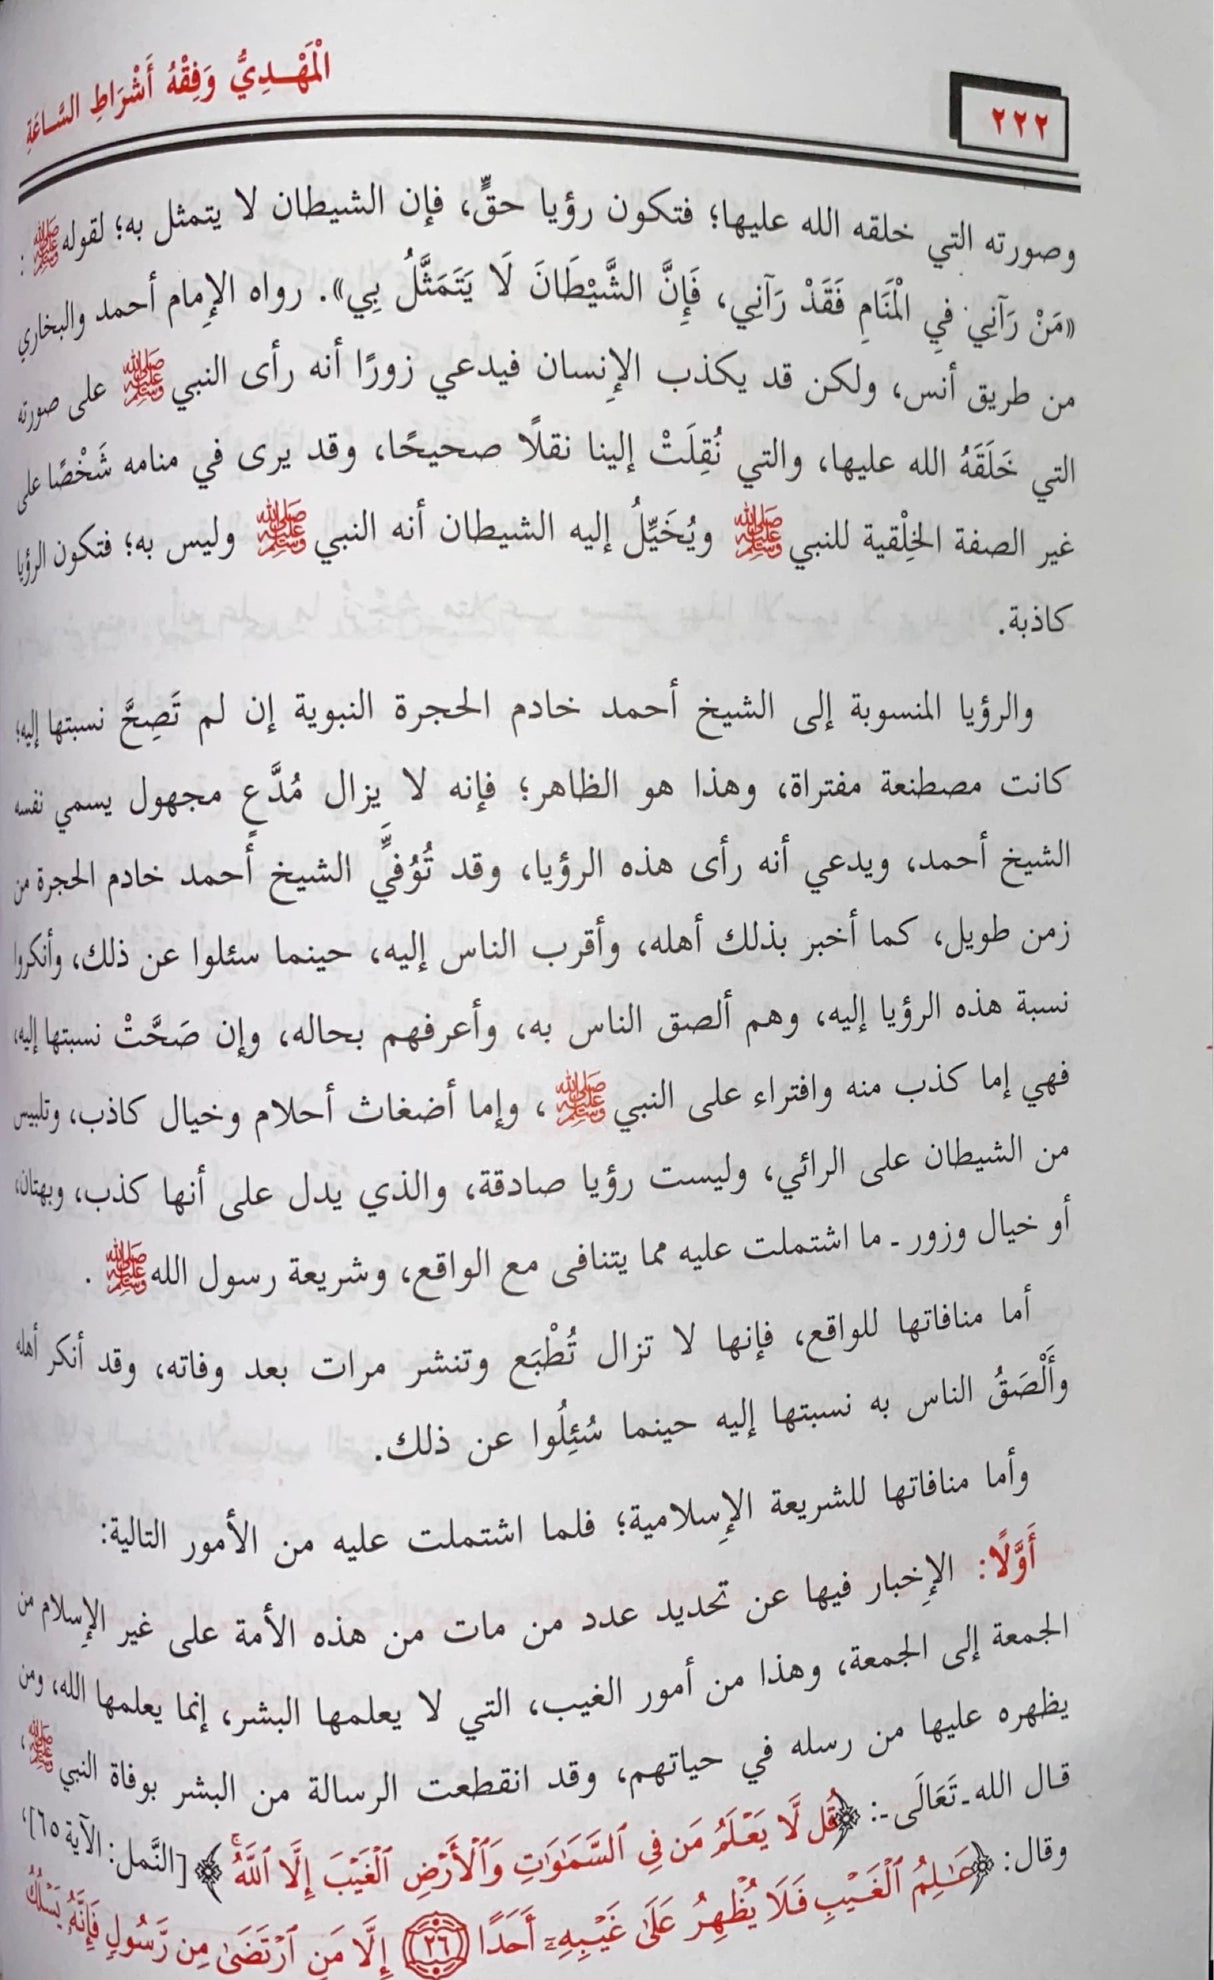 ٢٢٢
الْمَهْدِيُّ وَفِقْهُ أَشْرَاطِ السَّاعَةِ
وصورته التي خلقه الله عليها؛ فتكون رؤيا حقٍّ، فإن الشيطان لا يتمثل به؛ لقوله ﷺ :
«مَنْ رَآنِي فِي الْمَنَامِ فَقَدْ رَآنِي، فَإِنَّ الشَّيْطَانَ لَا يَتَمَثَّلُ بِي». رواه الإمام أحمد والبخاري
من طريق أنس، ولكن قد يكذب الإنسان فيدعي زورًا أنه رأى النبي ﷺ على صورته
التي خَلَقَهُ الله عليها، والتي نُقِلَتْ إلينا نقلًا صحيحًا، وقد يرى في منامه شَخْصًا على
غير الصفة الخِلْقية للنبي ﷺ ويُخَيِّلُ إليه الشيطان أنه النبي ﷺ وليس به؛ فتكون الرؤيا
كاذبة.
والرؤيا المنسوبة إلى الشيخ أحمد خادم الحجرة النبوية إن لم تَصِحَّ نسبتها إليه؛
كانت مصطنعة مفتراة، وهذا هو الظاهر؛ فإنه لا يزال مُدَّعٍ مجهول يسمي نفسه
الشيخ أحمد، ويدعي أنه رأى هذه الرؤيا، وقد تُوُفِّيَ الشيخ أحمد خادم الحجرة من
زمن طويل، كما أخبر بذلك أهله، وأقرب الناس إليه، حينما سئلوا عن ذلك، وأنكروا
نسبة هذه الرؤيا إليه، وهم ألصق الناس به، وأعرفهم بحاله، وإن صَحَّتْ نسبتها إليه،
فهي إما كذب منه وافتراء على النبي ﷺ ، وإما أضغاث أحلام وخيال كاذب، وتلبيس
من الشيطان على الرائي، وليست رؤيا صادقة، والذي يدل على أنها كذب، وبهتان،
أو خيال وزور ـ ما اشتملت عليه مما يتنافى مع الواقع، وشريعة رسول الله ﷺ .
أما منافاتها للواقع، فإنها لا تزال تُطْبَع وتنشر مرات بعد وفاته، وقد أنكر أهله
وأَلْصَقُ الناس به نسبتها إليه حينما سُئِلُوا عن ذلك.
وأما منافاتها للشريعة الإسلامية؛ فلما اشتملت عليه من الأمور التالية:
أَوَّلًا: الإخبار فيها عن تحديد عدد من مات من هذه الأمة على غير الإسلام من
الجمعة إلى الجمعة، وهذا من أمور الغيب، التي لا يعلمها البشر، إنما يعلمها الله، ومن
يظهره عليها من رسله في حياتهم، وقد انقطعت الرسالة من البشر بوفاة النبي ﷺ،
قال الله ـ تَعَالَى ـ: ﴿قُل لَّا يَعْلَمُ مَن فِي ٱلسَّمَٰوَٰتِ وَٱلْأَرْضِ ٱلْغَيْبَ إِلَّا ٱللَّهُ ۚ﴾ [النَّمل: الآية ٦٥]،
وقال: ﴿عَٰلِمُ ٱلْغَيْبِ فَلَا يُظْهِرُ عَلَىٰ غَيْبِهِۦٓ أَحَدًا ٢٦ إِلَّا مَنِ ٱرْتَضَىٰ مِن رَّسُولٍ فَإِنَّهُۥ يَسْلُكُ